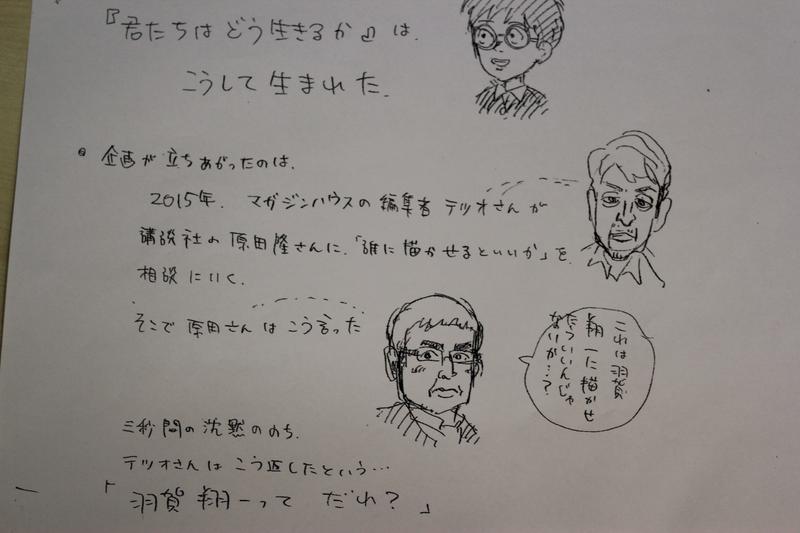 『君たちは どう生きるか』は、
こうして 生まれた.
企画が 立ちあがったのは、
2015年. マガジンハウスの 編集者 テツオさんが
講談社の 原田隆さんに、「誰に描かせるといいか」を
相談にいく.
そこで 原田さんは こう言った
これは羽賀
翔一に描かせ
たらいいんじゃ
ないか…?
三秒間の 沈黙ののち.
テツオさんは こう返したという…
「羽賀 翔一って だれ?」